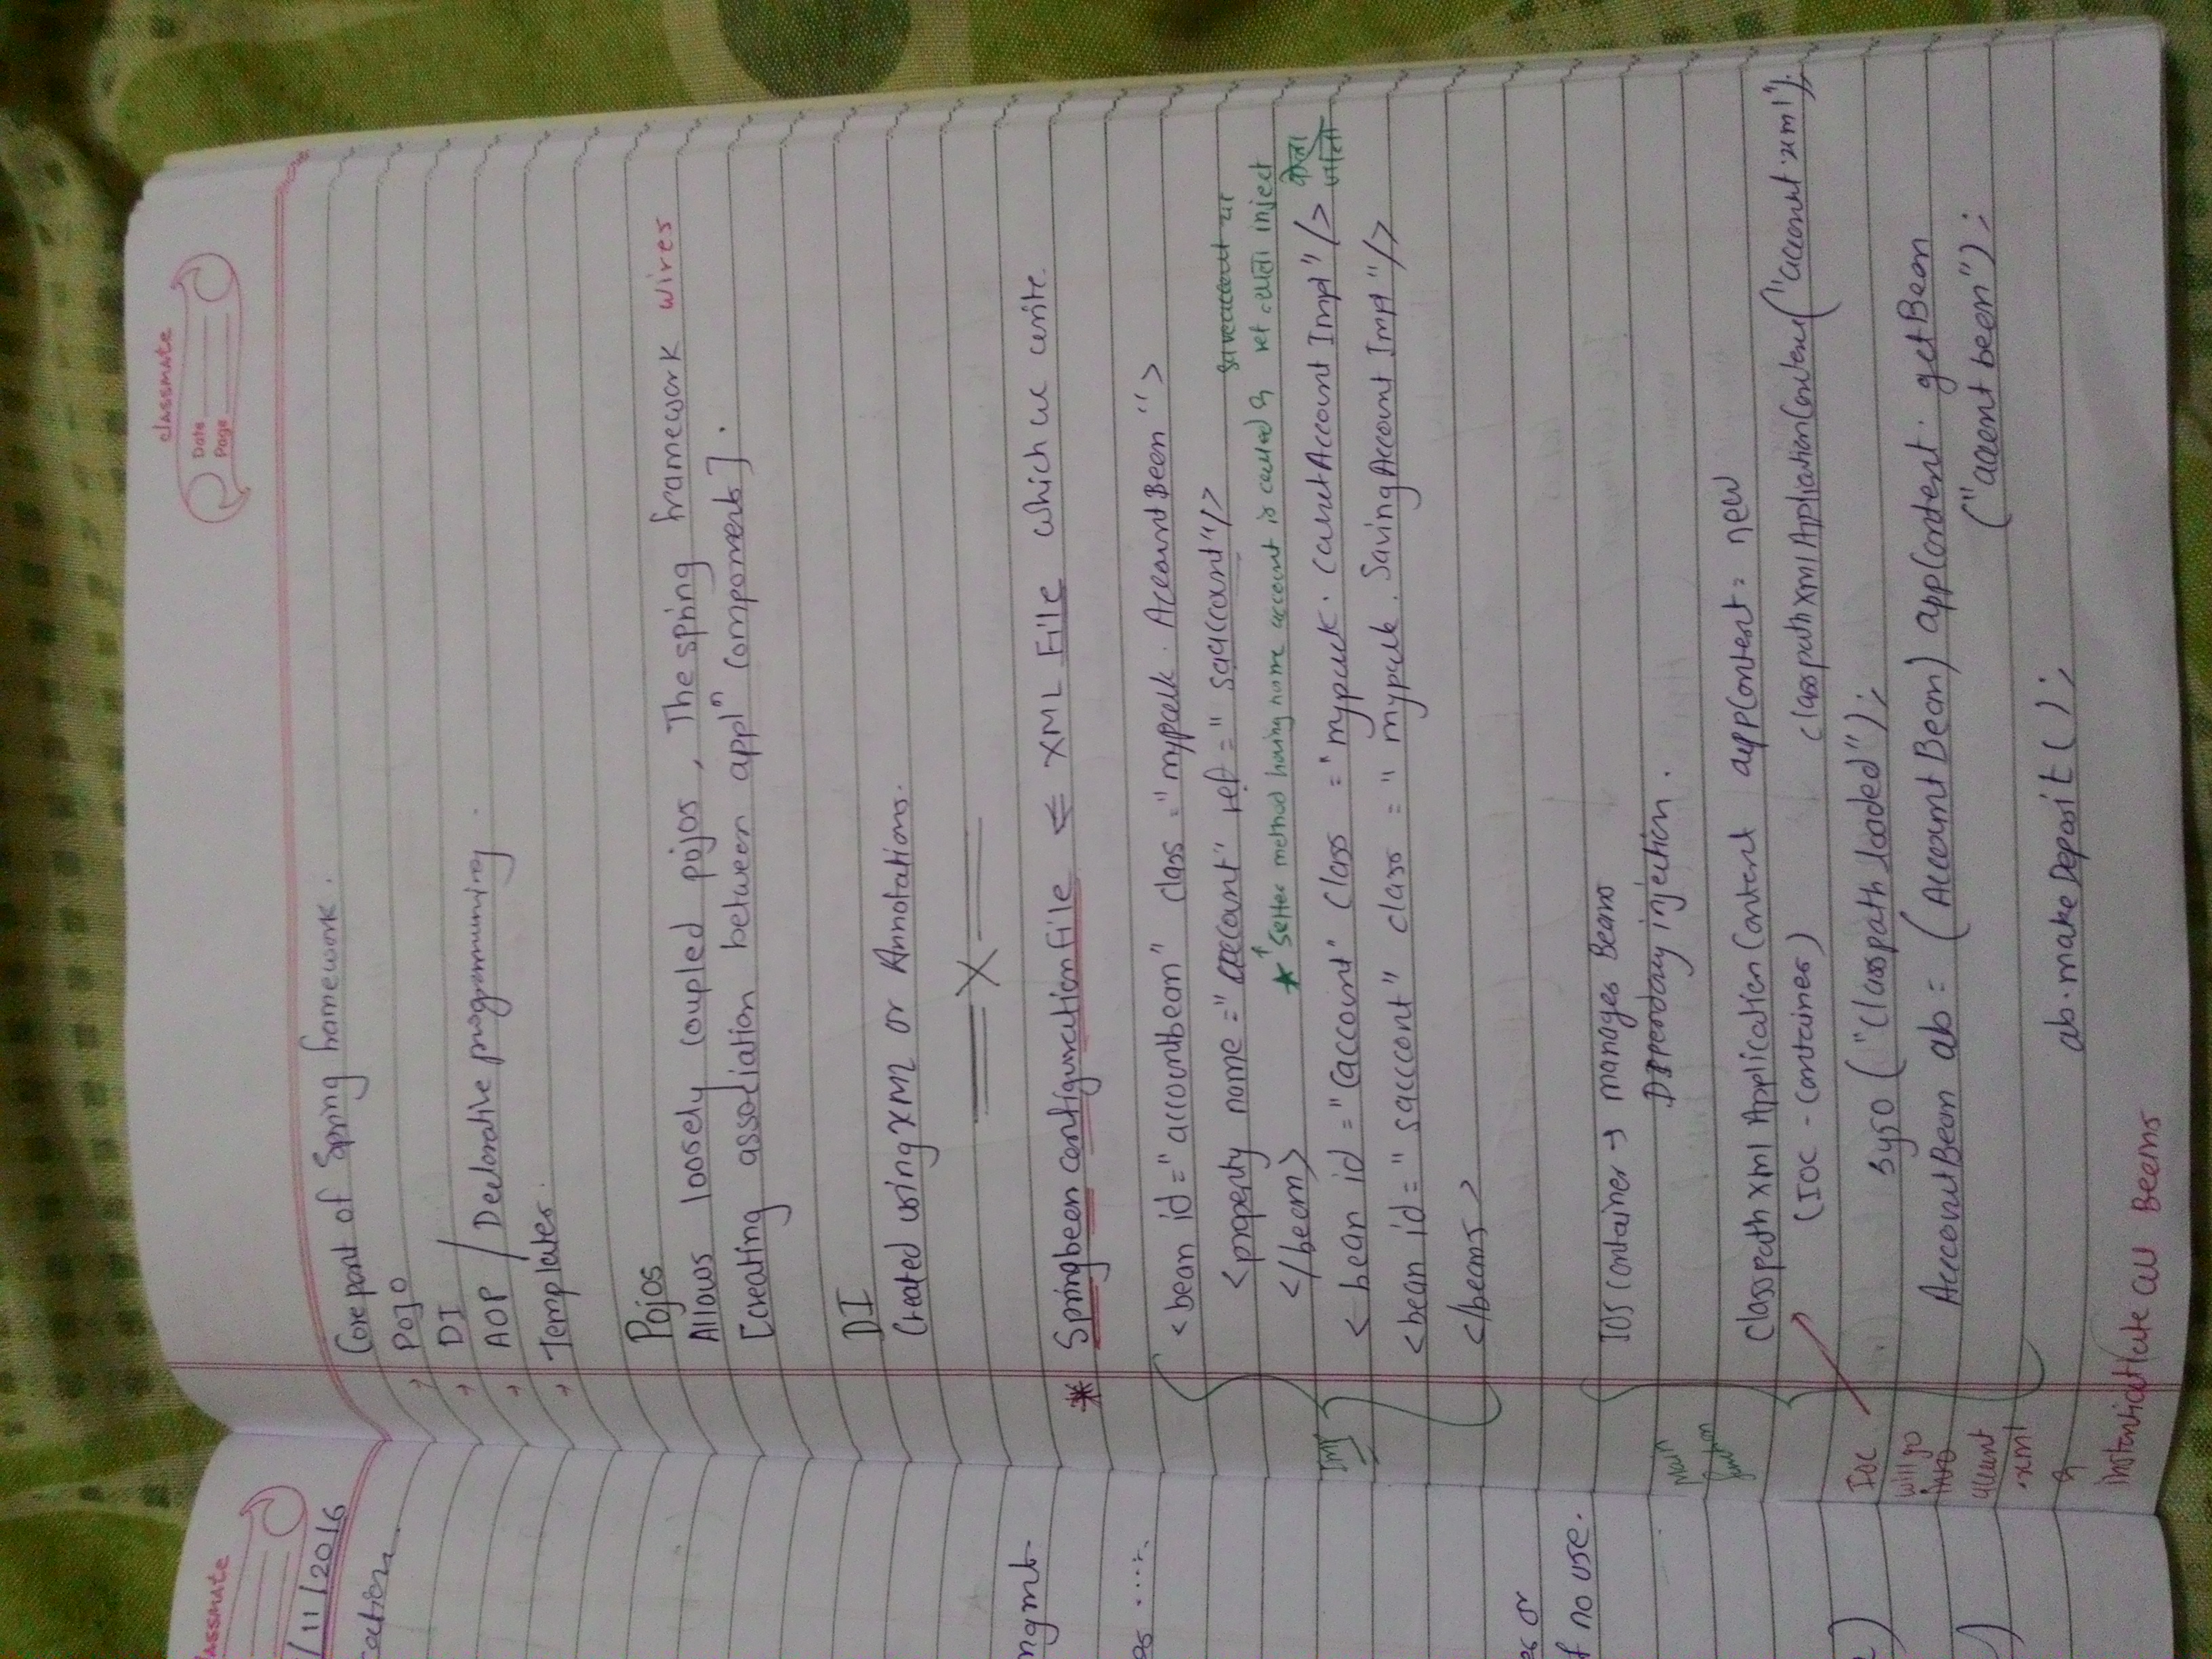 classmate
Date
Page
assmate
/11/2016
cation
ngmt
es or
f no use.
Core part of Spring framework.
→ POJO
→ DI
→ AOP / Declarative programming.
→ Templates.
Pojos
Allows loosely coupled pojos, The spring framework wires
[creating association between applⁿ components].
DI
Created using XML or Annotations.
X
* Springbeen configuration File ⇐ XML File which we write.
<bean id="accountbean" class="mypack.AccountBeen">
<property name="account" ref="saaccount"/>
↑
★ Setter method having name account is called & ref inject
केला
</bean>
Imp
<bean id="caccount" class="mypack. AccountImpl"/>
<bean id="sacccont" class="mypack.SavingAccountImpl"/>
</beans>
IOS Container → manages Beans
Dependency injection.
Main
function
Classpath xml Application Content appContent = new
(IOC - Container) classpathxmlApplicationContent("account.xml");
syso ("Classpath loaded");
AccountBean ab = (AccountBean) appContent.getBean
("accent been");
ab.makeDeposit();
IOC
will go
into
.xml
&
instantiate all Beems